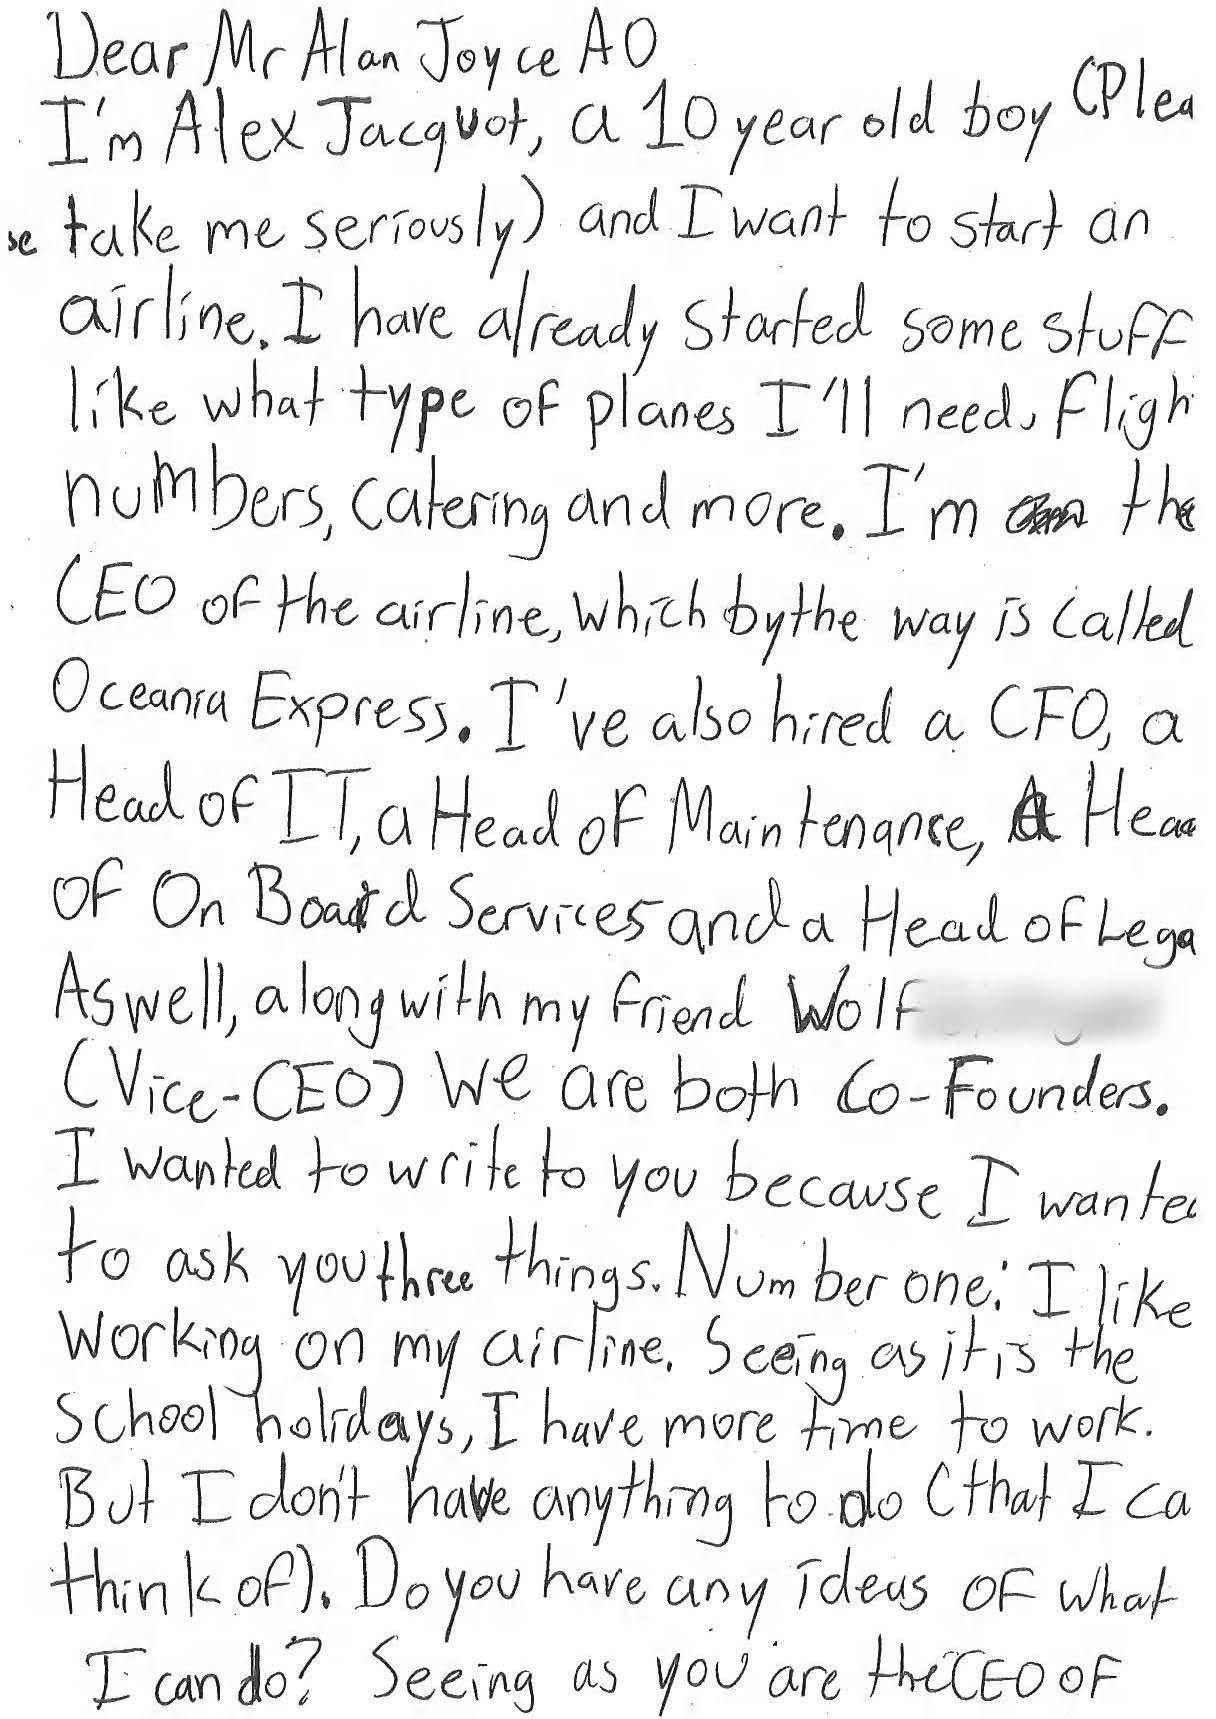 Dear Mr Alan Joyce AO
I'm Alex Jacquot, a 10 year old boy (Plea
se take me seriously) and I want to start an
airline. I have already started some stuff
like what type of planes I'll need, fligh
numbers, catering and more. I'm the
CEO of the airline, which by the way is called
Oceania Express. I've also hired a CFO, a
Head of IT, a Head of Maintenance, a Head
of On Board Services and a Head of Lega
Aswell, along with my friend Wolf
(Vice-CEO) We are both Co-Founders.
I wanted to write to you because I wanted
to ask you three things. Number one: I like
working on my airline. Seeing as it is the
school holidays, I have more time to work.
But I don't have anything to do (that I ca
think of). Do you have any ideas of what
I can do? Seeing as you are the CEO of